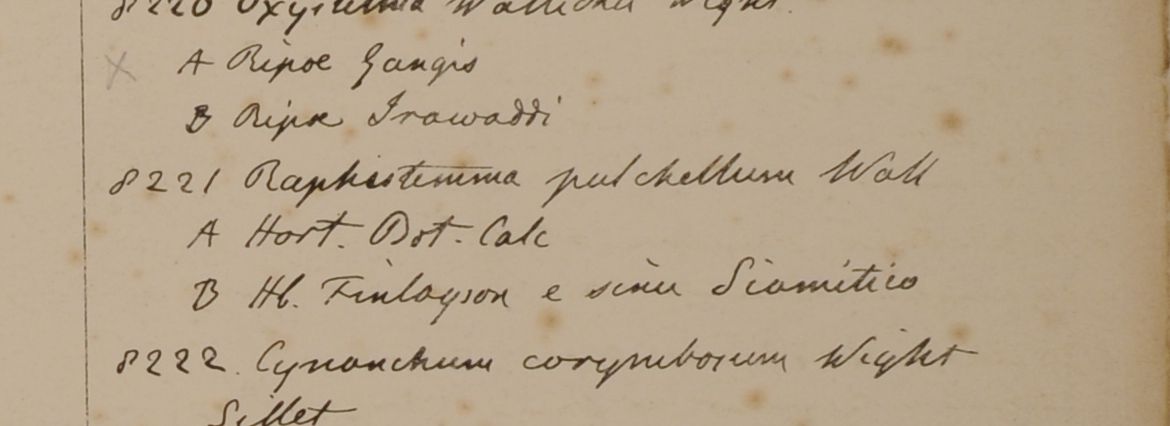 8220 Oxystelma Wallichii Wight.
A Ripæ Gangis
B Ripæ Irawaddi
8221 Raphistemma pulchellum Wall
A Hort. Bot. Calc
B Hb. Finlayson e sinu Siamitico
8222. Cynanchum corymbosum Wight
Sillet